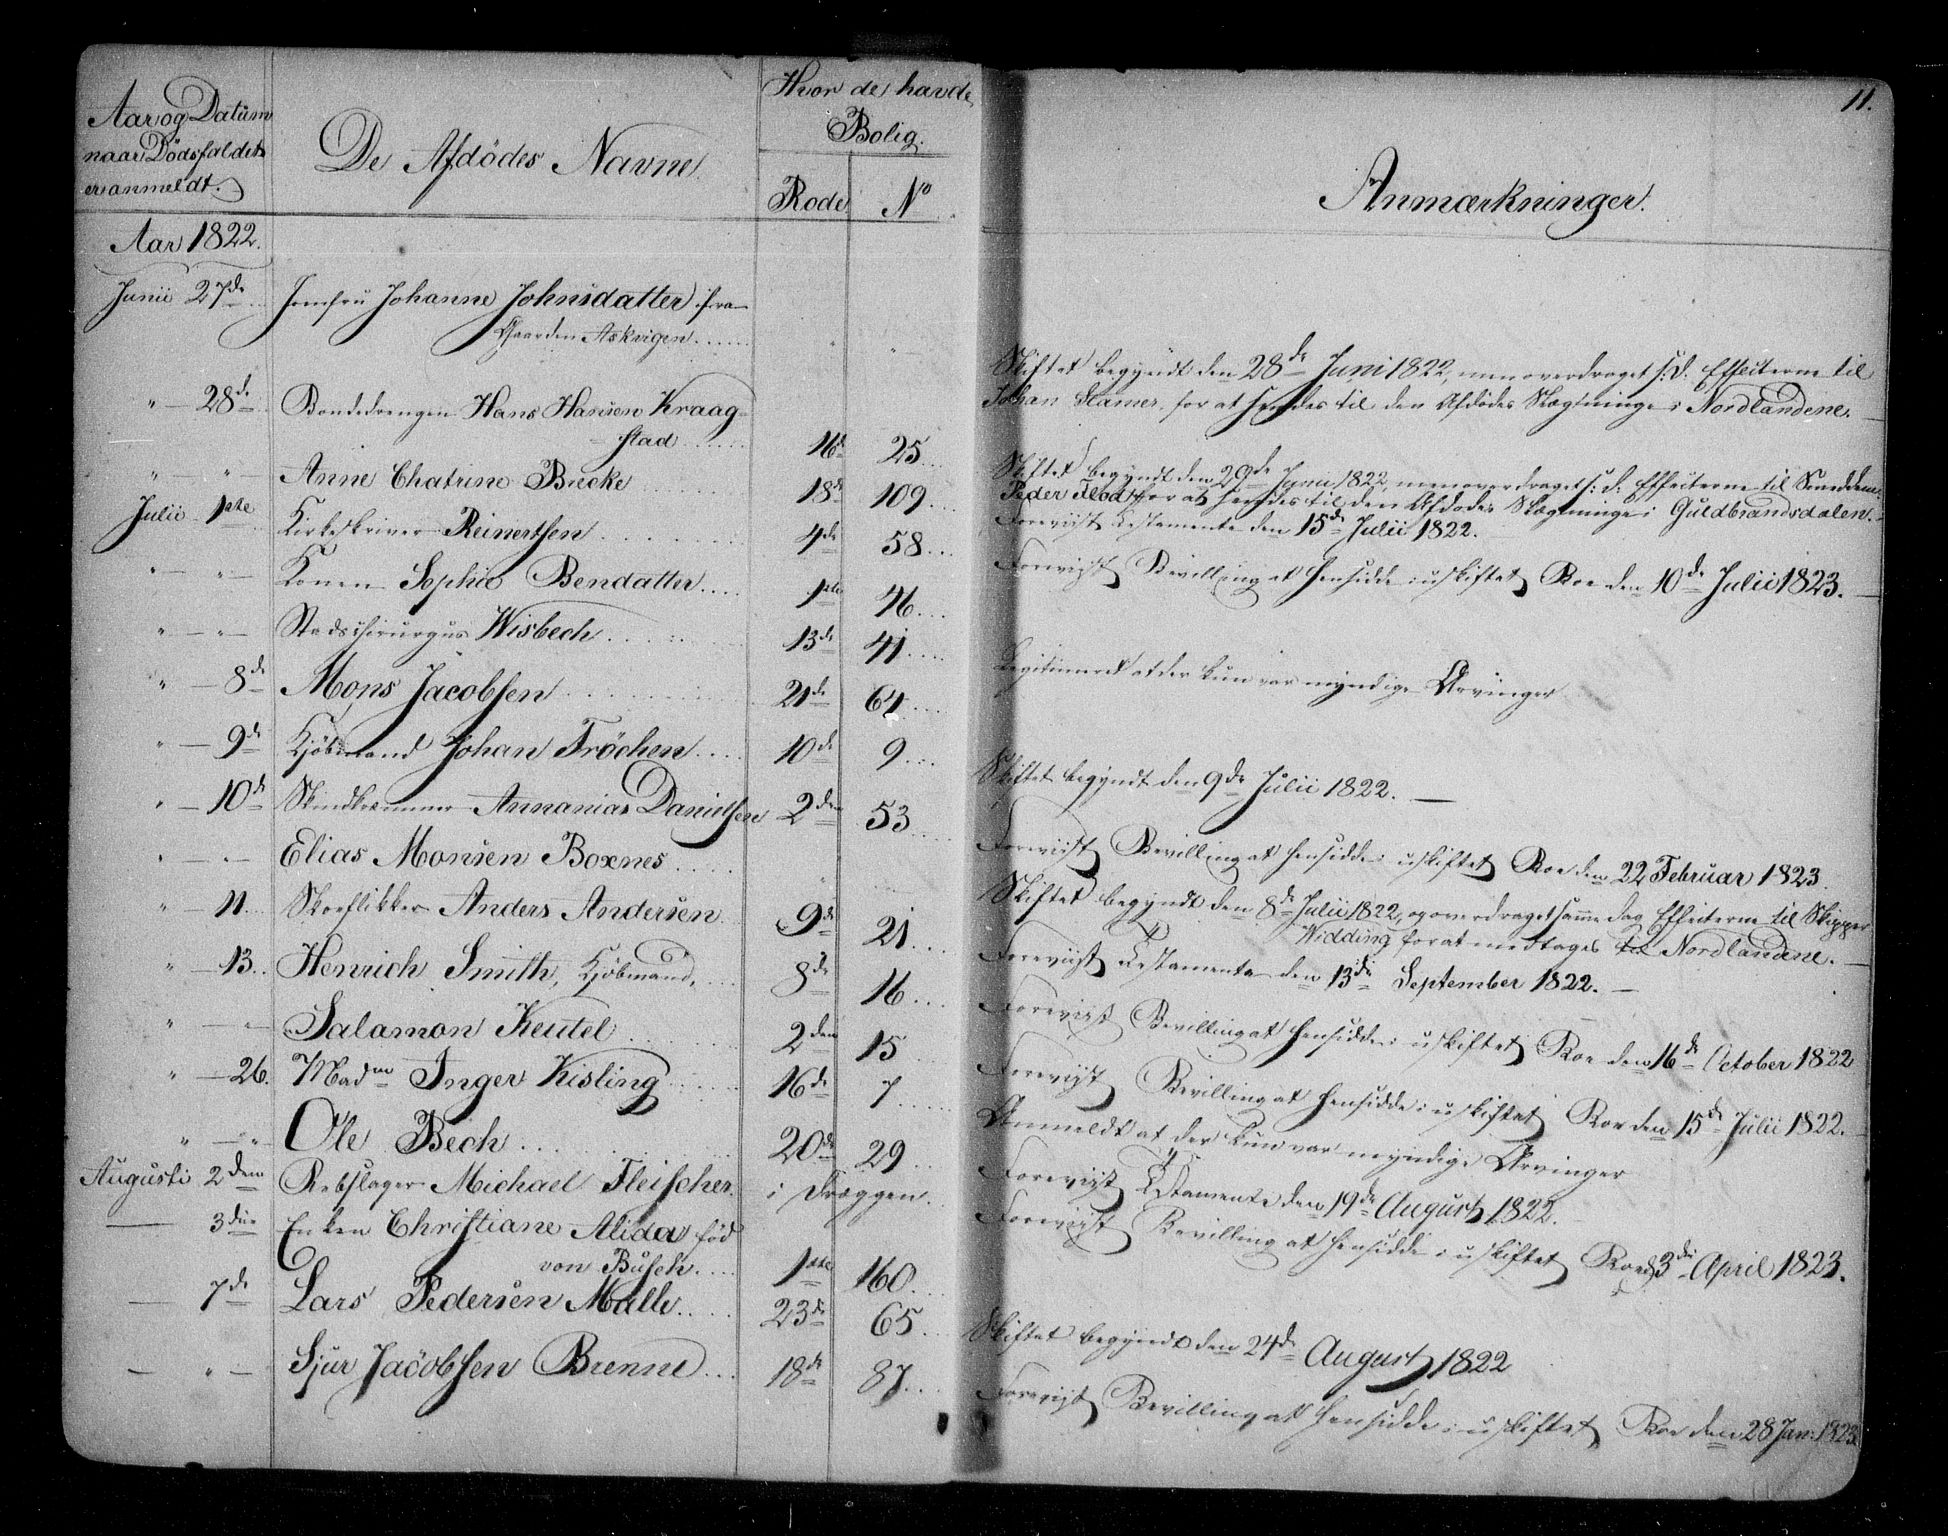 Aar og Datum
naar Dødsfaldet
er anmeldt.
De Afdødes Navne
Hvor de havde
Bolig.
Rode
No
Aar 1822.
Junii 27de Jomfru Johanne Johnsdatter fra
Gaarden Askvigen......
" — 28de Bondedrengen Hans Hansen Kraag-
stad ...... 16de 25...
" — " — Anne Chatrine Biecke 18de 109...
Julii 1ste Kirkeskriver Reinertsen 4de 58...
" — " — Konen Sophie Bendatter.... 1ste 46....
" — " — Stadschirurgus Wisbech.... 13de 41....
" — 8de Mons Jacobsen 21de 64....
" — 9de Kjøbmand Johan Fröchen.... 10de 9...
" — 10de Skindkræmmer Annanias Danielsen 2den 53....
" — " — Elias Monsen Boxnes....
" — 11... Skoeflikker Anders Andersen 9de 21....
" — 13.. Henrich Smith, Kjøbmand, 8de 16....
" — " — Salamon Keutel 2den 15
" — 26. Madme Inger Kisling 16de 7......
" — " Ole Bech 20de 29...
Augusti 2den Rebslager Michael Fleischer. i Dræggen.
— 3die Enken Christiane Alida fød
von Busch.... 1ste 160...
— 7de Lars Pedersen Malle 23de 65...
— " — Sjur Jacobsen Brenne... 18de 87...
11.
Anmærkninger.
Skiftet begyndt den 28de Juni 1822, men overdraget s: d: Effecterne til
Johan Hamer for at sendes til den Afdødes Slægtninge i Nordlandene.
Skiftet begyndt den 29de Juni 1822, men overdraget s: d: Effecterne til
Peder for at sendes til den Afdødes Slægtninge i Guldbrandsdalen.
Foreviist Testamente den 15de Julii 1822.
Foreviist Bevilling at hensidde i uskiftet Boe den 10de Julii 1823.
Legitimeret at der kun var myndige Arvinger
Skiftet begyndt den 9de Julii 1822. —
Foreviist Bevilling at hensidde i uskiftet Boe den 22 Februar 1823.
Skiftet begyndt den 8de Julii 1822, og overdraget samme dag Effecterne til Skipper
Widding for at medtages til Nordlandene.
Foreviist Testamente den 13de September 1822. —
Foreviist Bevilling at hensidde i uskiftet Boe den 16de October 1822
Foreviist Bevilling at hensidde i uskiftet Boe den 15de Julii 1822.
Anmeldt at der kun var myndige Arvinger
Foreviist Testamente den 19de August 1822.
Foreviist Bevilling at hensidde i uskiftet Boe d 3die April 1823.
Skiftet begyndt den 24de August 1822
Foreviist Bevilling at hensidde i uskiftet Boe den 28 Jan: 1823